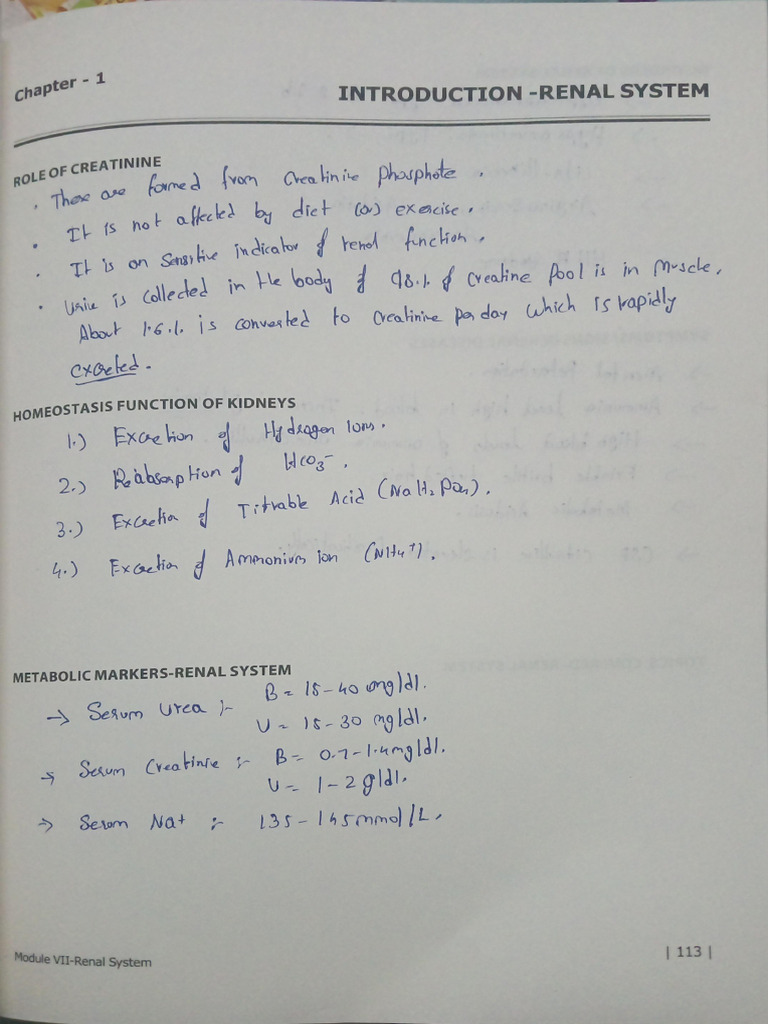 Chapter - 1
INTRODUCTION -RENAL SYSTEM
ROLE OF CREATININE
• These are formed from Creatinine phosphote.
• It is not affected by diet (or) exercise.
• It is on Sensitive indicator of renol function.
• Urine is Collected in the body of 98.1. of Creatine Pool is in Muscle,
About 1.6.1. is converted to Creatinine per day which is rapidly
excreted.
HOMEOSTASIS FUNCTION OF KIDNEYS
1.) Excretion of Hydrogen Ions.
2.) Reabsorption of HCO3-.
3.) Excretion of Titrable Acid (NaH2PO4).
4.) Excretion of Ammonium ion (NH4+).
METABOLIC MARKERS-RENAL SYSTEM
→ Serum Urea :- B = 15-40 mg/dl.
U = 15-30 mg/dl.
→ Serum Creatinine :- B = 0.7-1.4mg/dl.
U = 1-2 g/dl.
→ Serum Na+ :- 135-145mmol/L.
Module VII-Renal System
| 113 |